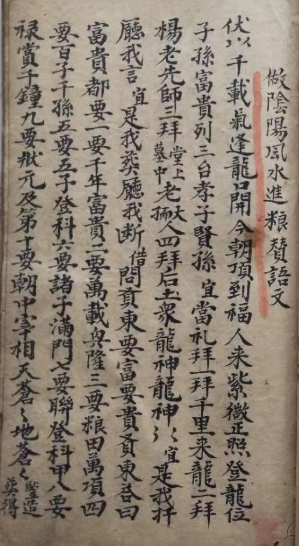 做陰陽風水進粮賛語文
伏以千載氣逢龍口開今朝頂到福人来紫微正照登龍位
子孫富貴列三台孝子賢孫宜當礼拜一拜千里来龍二拜
楊老先師三拜堂上墓中老大孺人四拜后土衆龍神龍神〻宜是我扦
廳我言宜是我葬廳我断借問賫東要富要貴賫東荅曰
富貴都要一要千年富貴二要萬載興隆三要粮田萬項四
要百子千孫五要五子登科六要諸子滿門七要聯登科甲八要
禄賞千鐘九要狀元及第十要朝中宰相天蒼〻地蒼〻竪造英得